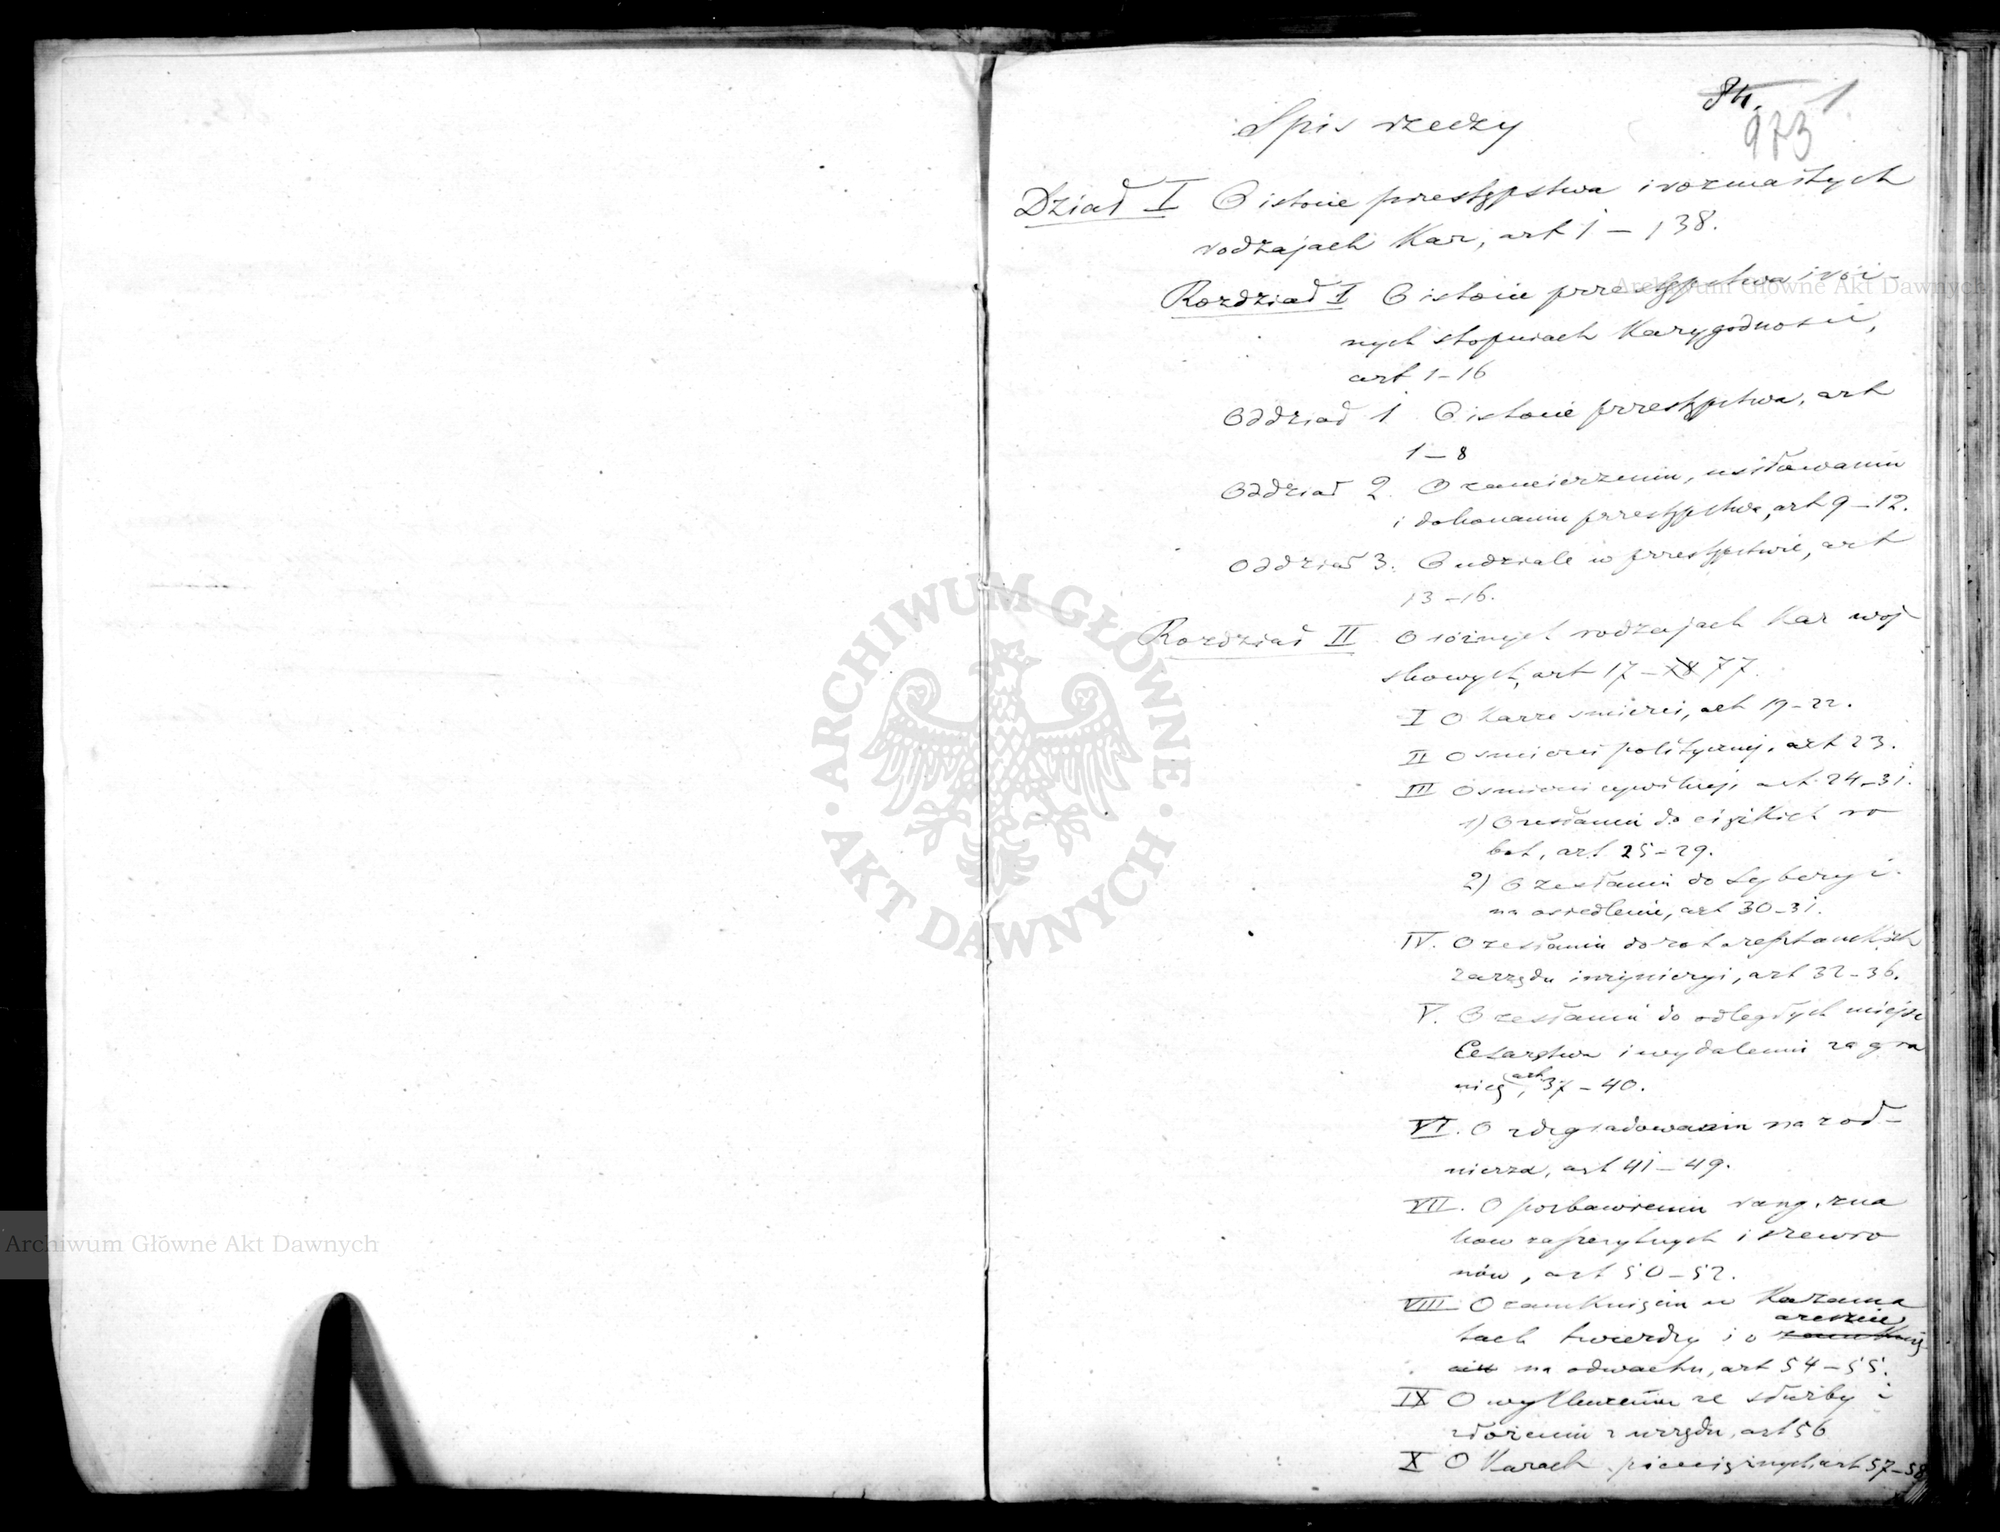 84. 1
973
Spis rzeczy
Dział I O istocie przestępstwa i rozmaitych
rodzajach Kar, art 1 – 138.
Rozdział I O istocie przestępstwa i róż-
nych stopniach Karygodności,
art 1–16
Oddział 1 O istocie przestępstwa, art
1–8
Oddział 2. O zamierzeniu, usiłowaniu
i dokonaniu przestępstwa, art 9–12.
Oddział 3. O udziale w przestępstwie, art
13–16.
Rozdział II O różnych rodzajach Kar woj
skowych, art 17–78 77.
I O Karze śmierci, art 19–22.
II O śmierci politycznej, art 23.
III O śmierci cywilnej, art 24–31.
1) O zesłaniu do ciężkich ro
bot, art 25–29.
2) O zesłaniu do Syberyi
na osiedlenie, art 30–31.
IV. O zesłaniu do rot aresztanckich
zarządu inżynieryi, art 32–36.
V. O zesłaniu do odległych miejsc
Cesarstwa i wydaleniu za gra
nicę, art 37–40.
VI. O zdegradowaniu na żoł-
nierza, art 41–49.
VII. O pozbawieniu rang, zna
kow zaszczytnych i szewro
nów, art 50–52.
VIII O zamknięciu w Kazama
tach twierdzy i o zamknię areszcie
ciu na odwachu, art 54–55.
IX O wykluczeniu ze służby i
złożeniu z urzędu, art 56
X O Karach pieniężnych art 57–58
ARCHIWUM GŁÓWNE · AKT DAWNYCH ·
Archiwum Główne Akt Dawnych
Archiwum Główne Akt Dawnych